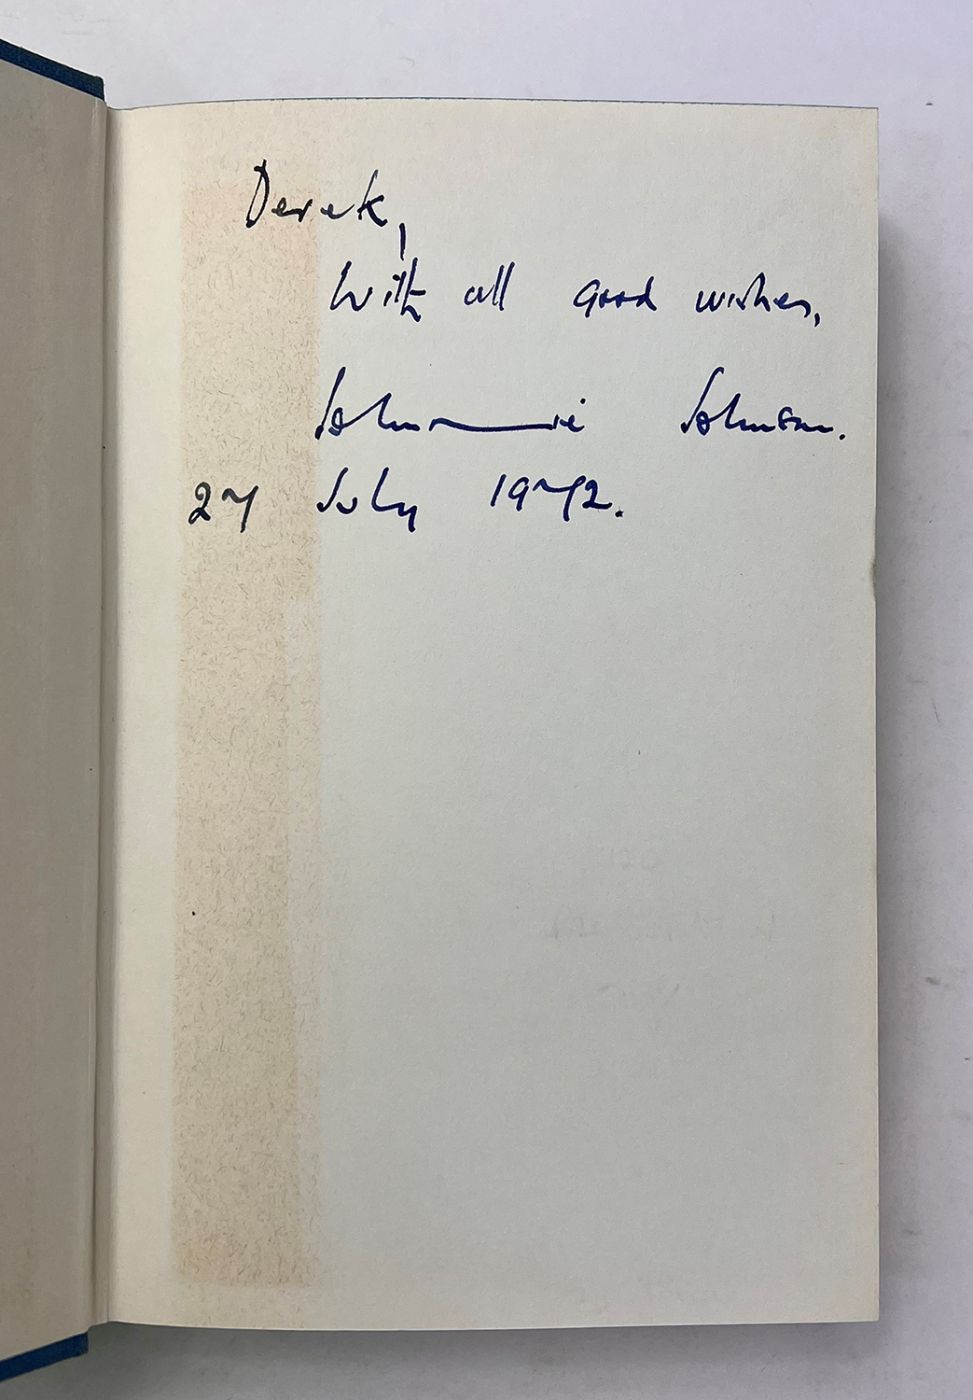 Derek,
With all good wishes,
Johnnie Johnson.
27 July 1972.